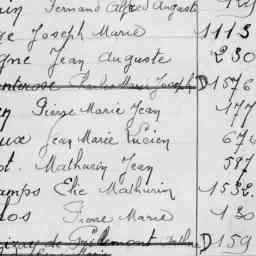 Fernand Alfred Auguste
Joseph Marie 1113
Jean Auguste 230
Charles Marie Joseph D 1576
Pierre Marie Jean 177
Jean Marie Lucien 674
Mathurin Jean 587
amps Elie Mathurin 1532
los Pierre Marie 130
de D 159